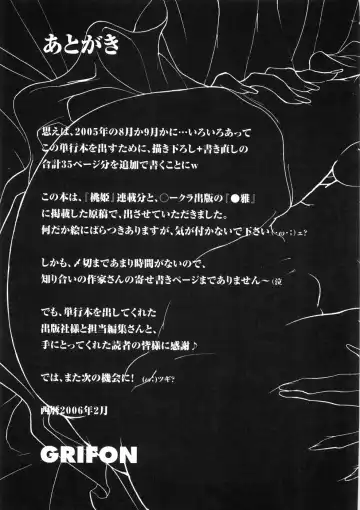 あとがき
思えば、2005年の8月か9月かに…いろいろあって
この単行本を出すために、描き下ろし+書き直しの
合計35ページ分を追加で書くことにw
この本は、『桃姫』連載分と、○ークラ出版の『●雅』
に掲載した原稿で、出させていただきました。
何だか絵にばらつきありますが、気が付かないで下さい
しかも、〆切まであまり時間がないので、
知り合いの作家さんの寄せ書きページまでありません〜(泣
でも、単行本を出してくれた
出版社様と担当編集さんと、
手にとってくれた読者の皆様に感謝♪
では、また次の機会に! (;ω;)ツギ?
西暦2006年2月
GRIFON